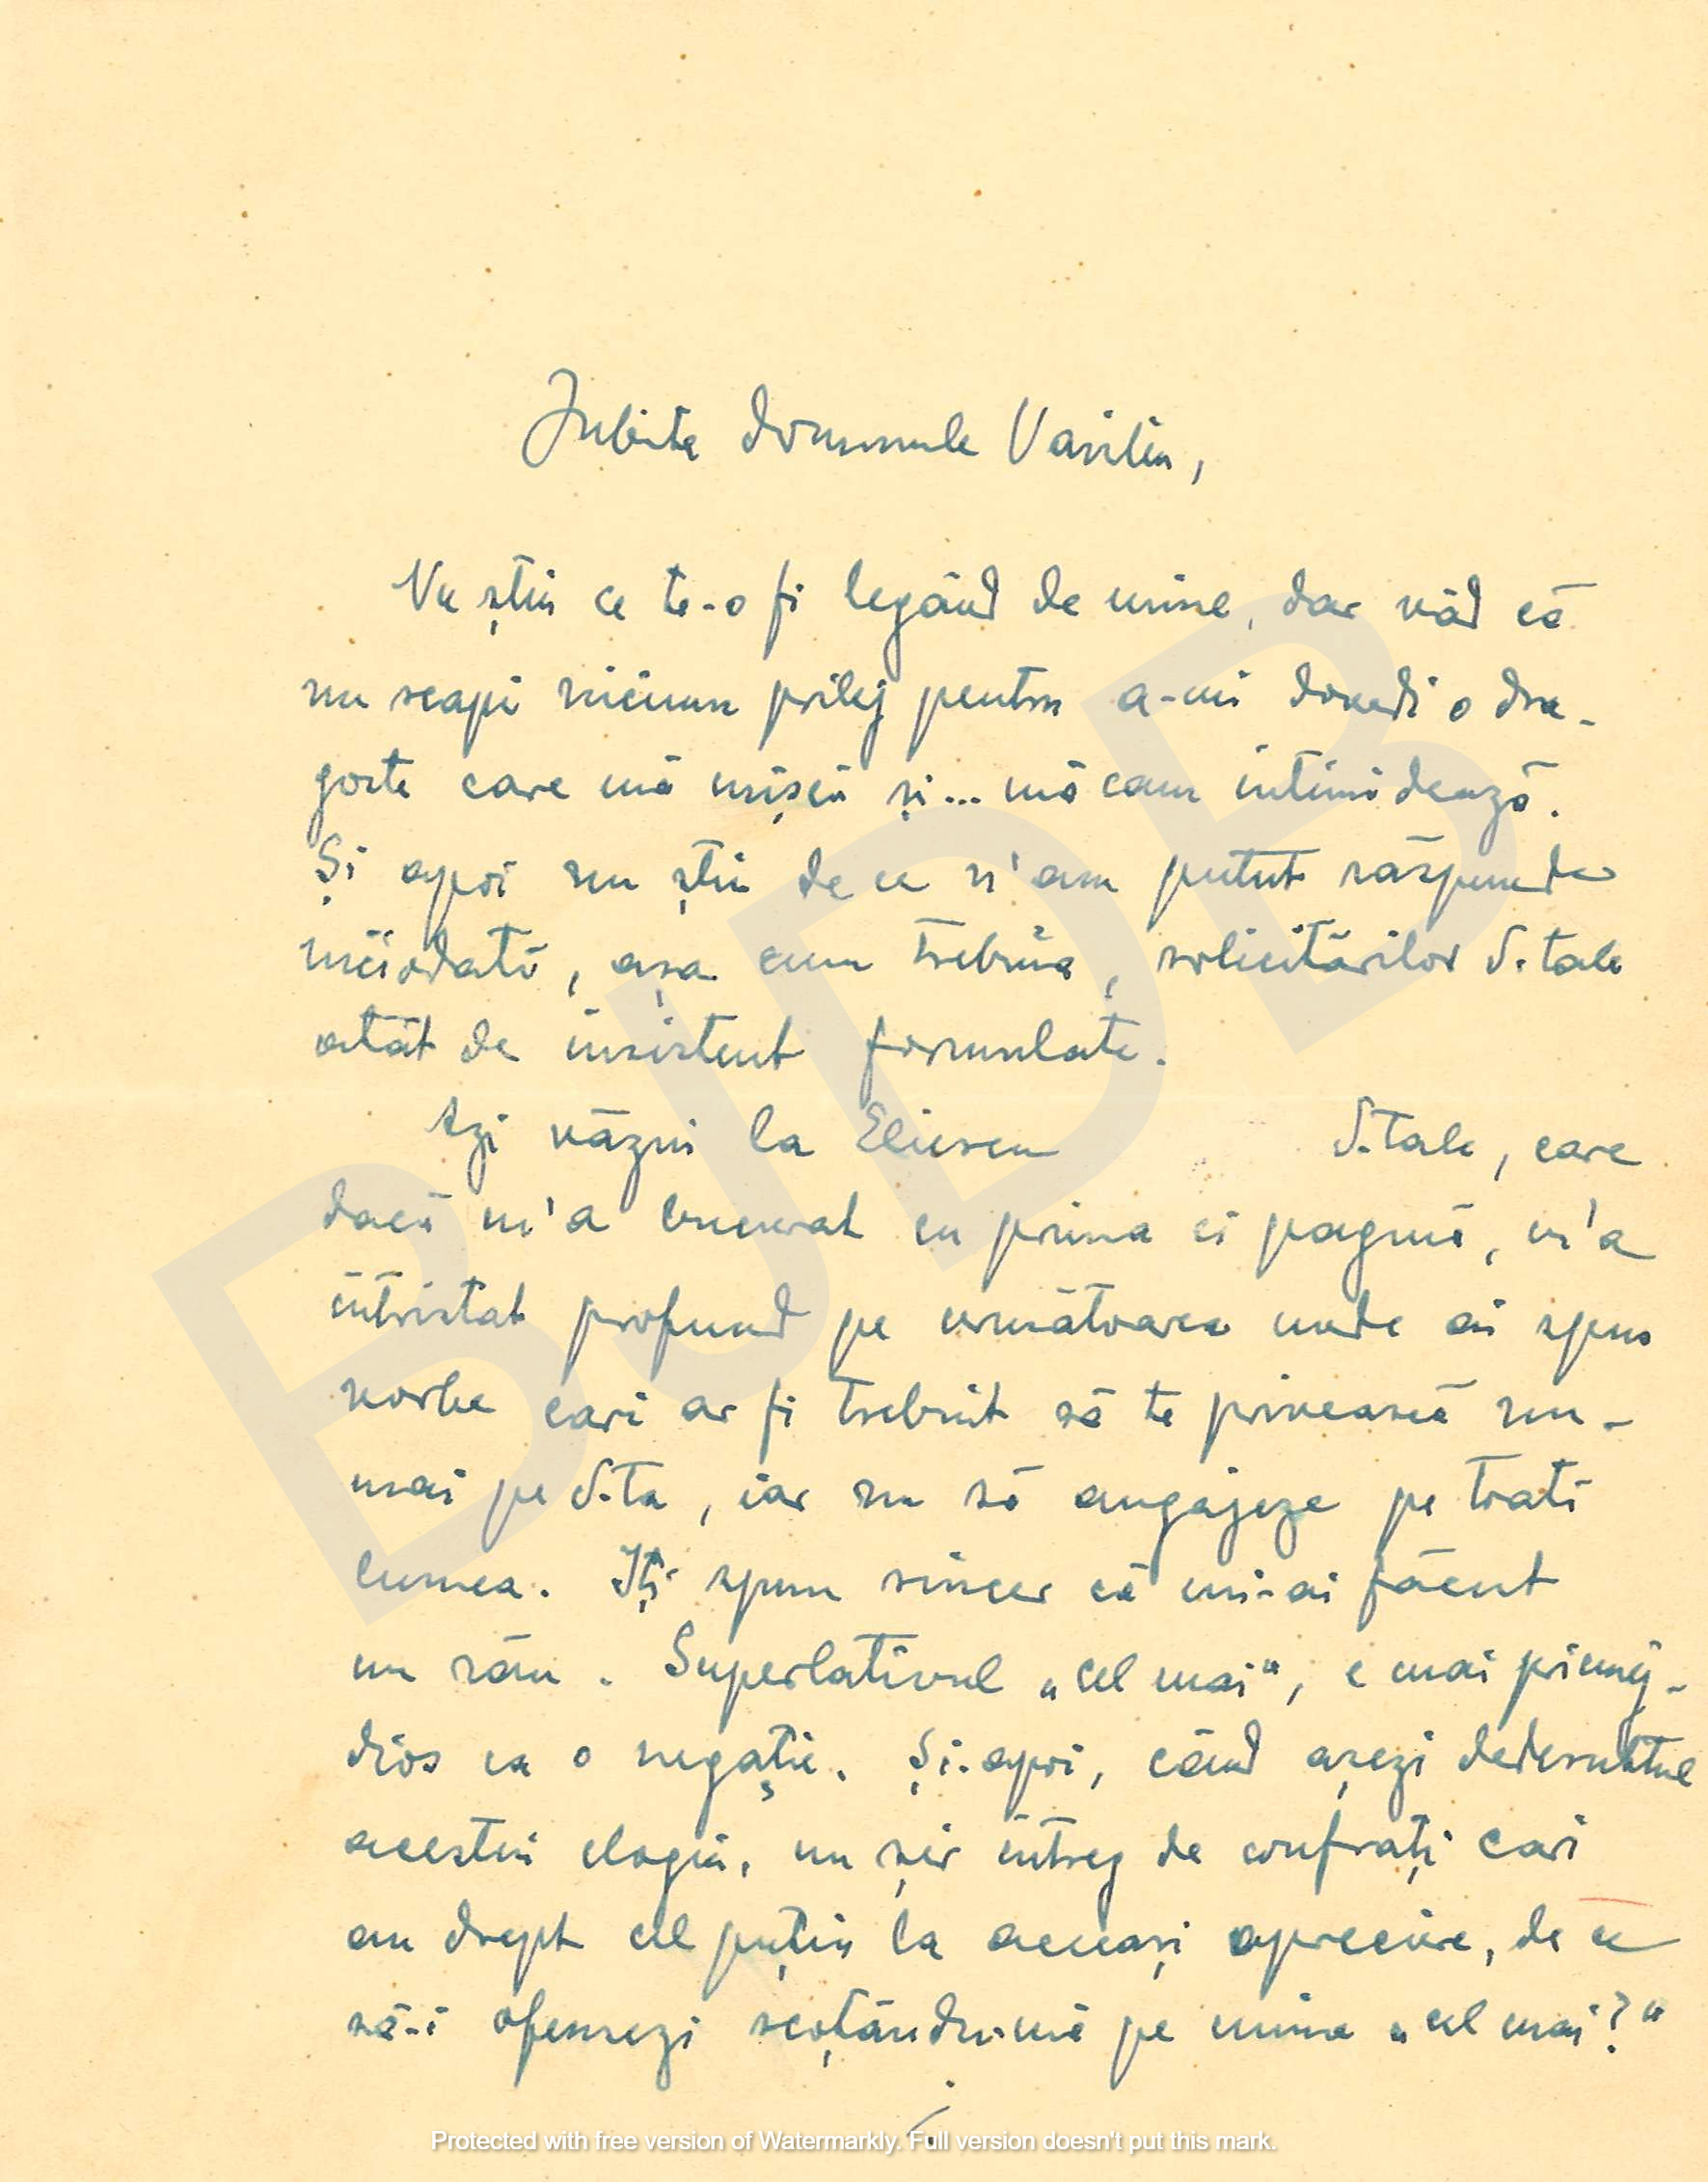 Iubite domnule Vasiliu,
Nu știu ce te-o fi legând de mine, dar văd că
nu scapi niciun prilej pentru a-mi dovedi o dra-
goste care mă mișcă și... mă cam intimidează.
Și apoi nu știu de ce n'am putut răspunde
niciodată, așa cum trebuia, solicitărilor d-tale
atât de insistent formulate.
Azi văzui la Eliescu d-tale, care
dacă m'a bucurat cu prima ei pagină, m'a
întristat profund pe următoarea unde ai spus
vorbe cari ar fi trebuit să te privească nu-
mai pe d-ta, iar nu să angajeze pe toată
lumea. Iți spun sincer că mi-ai făcut
un rău. Superlativul „cel mai“, e mai primej-
dios ca o negație. Și-apoi, când așezi dedesubtul
acestui elogiu, un șir întreg de confrați cari
au drept cel puțin la aceeași apreciere, de ce
să-i ofensezi scoțându-mă pe mine „cel mai?“
./.
BJDB
Protected with free version of Watermarkly. Full version doesn't put this mark.